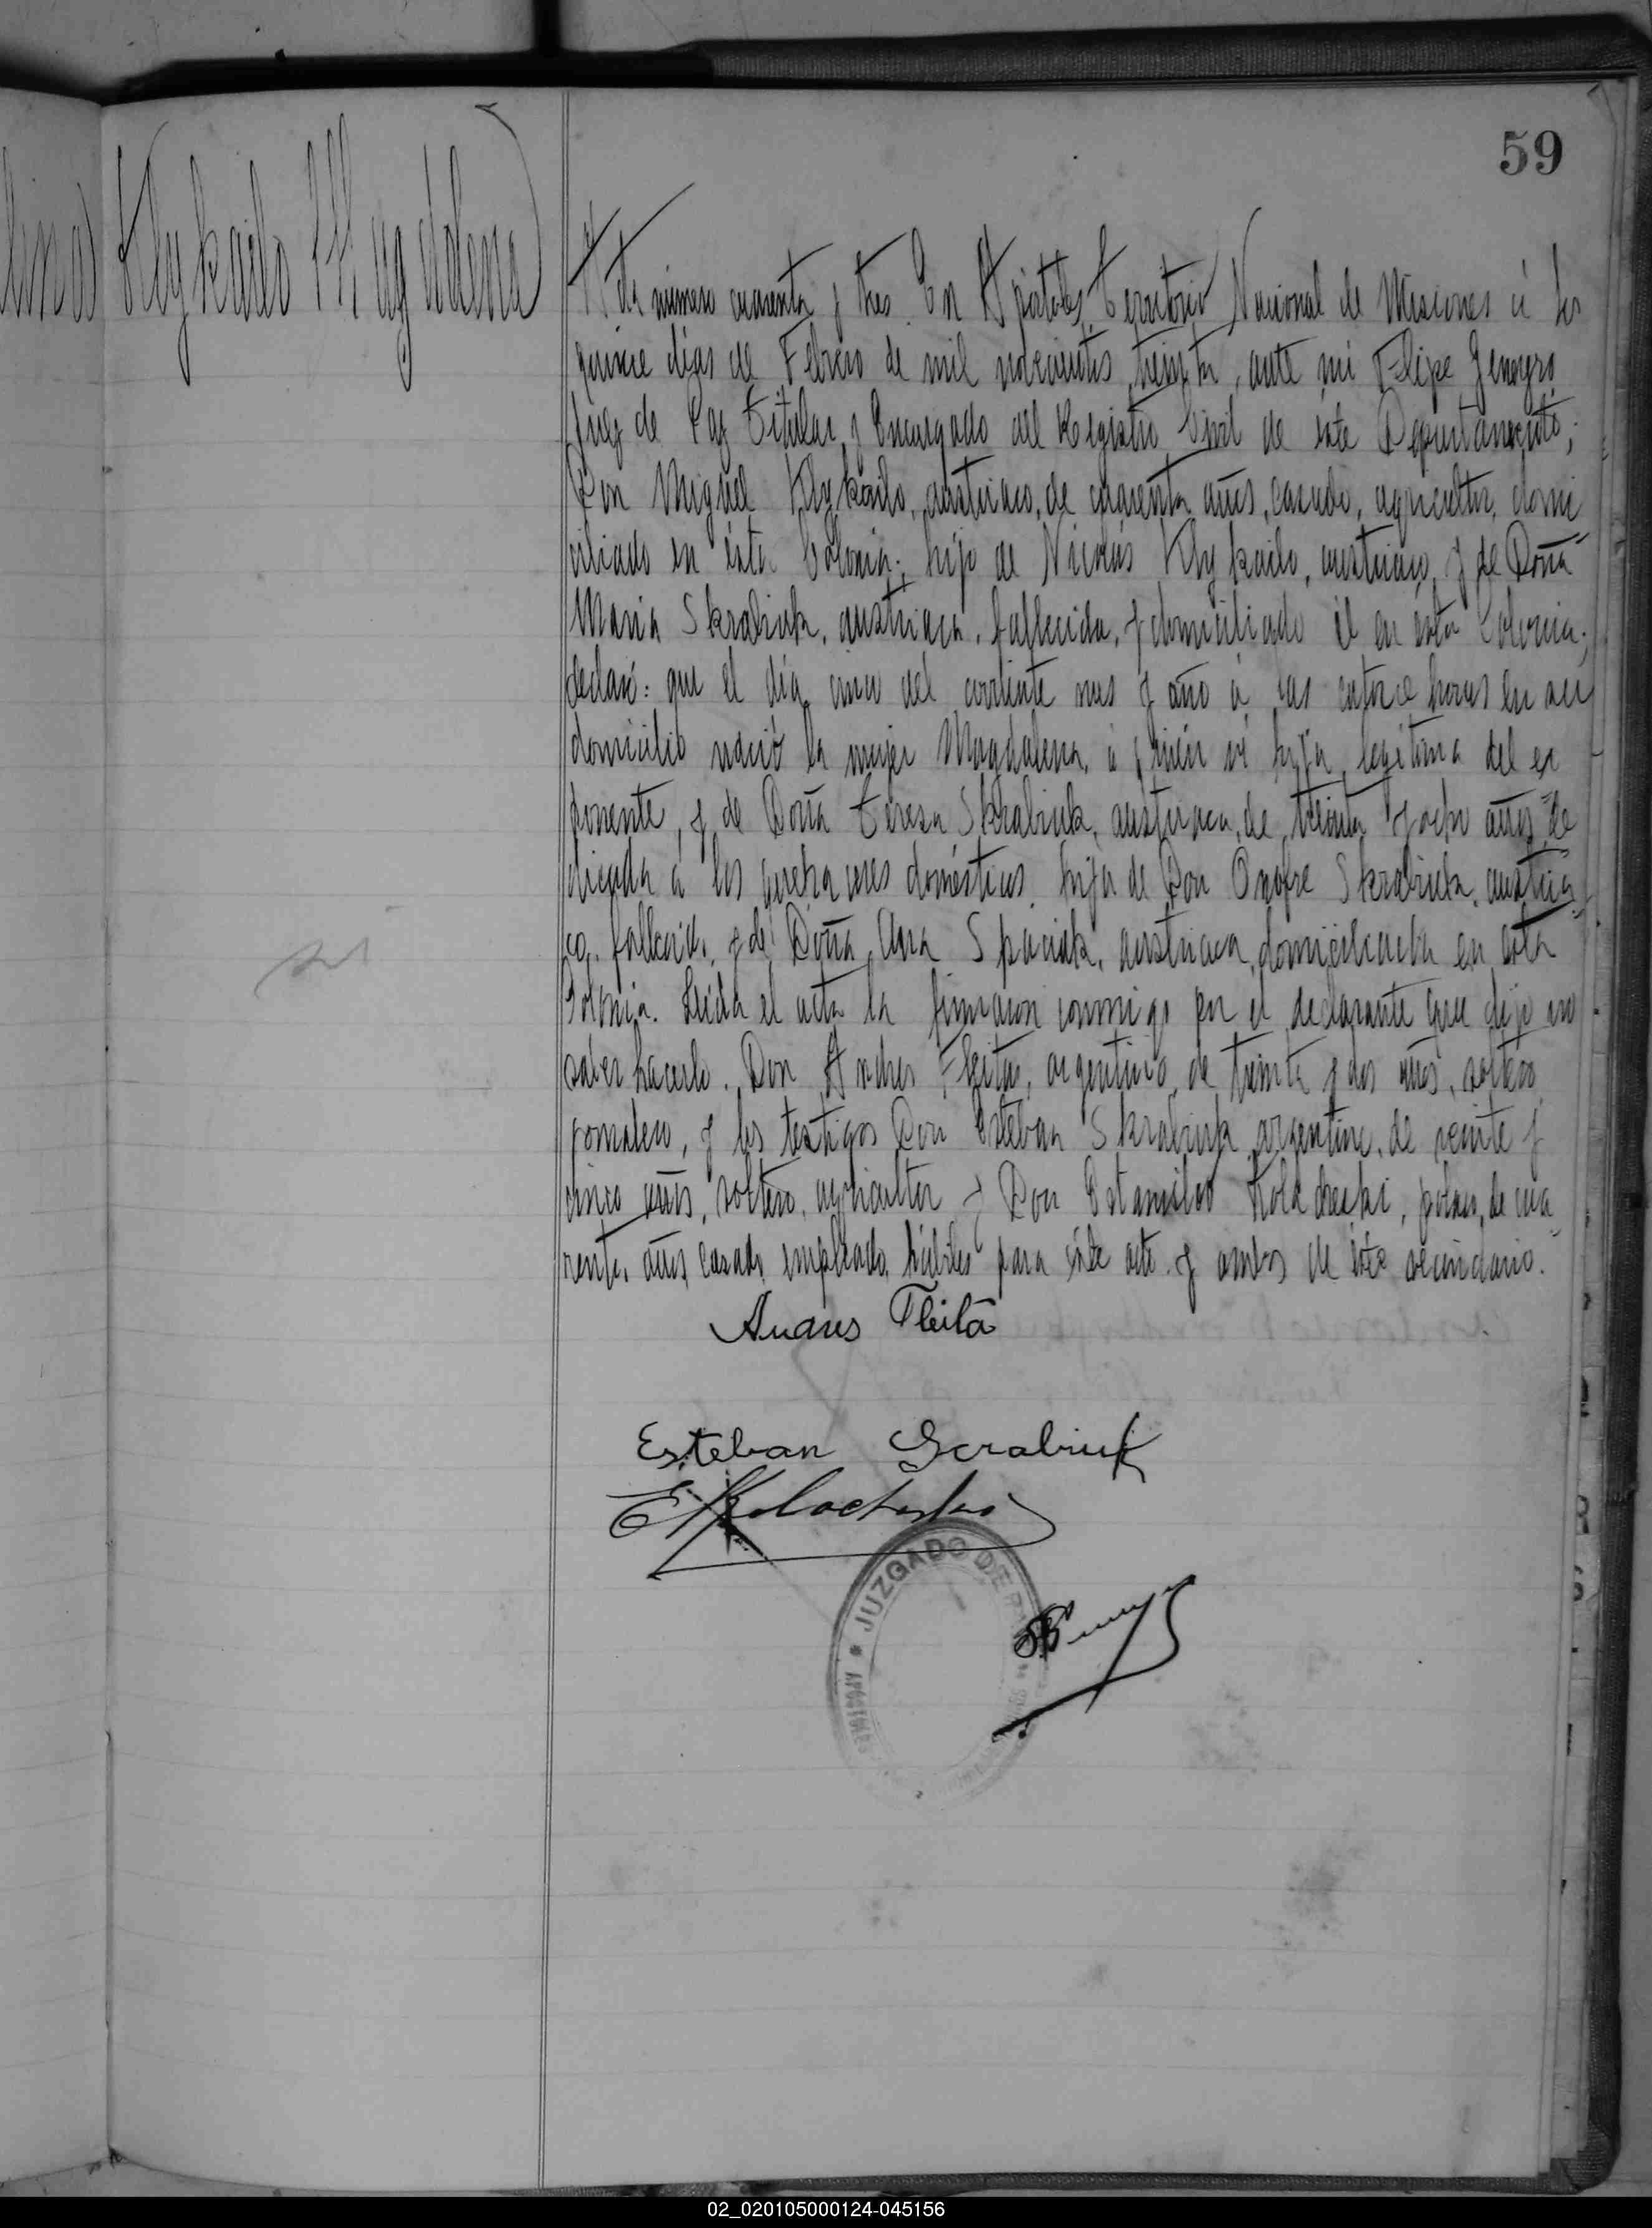 59
Klykailo Magdalena
Acta número cuarenta y tres. En Apóstoles, Territorio Nacional de Misiones á los
quince días de Febrero de mil novecientos treinta, ante mi Felipe
Juez de Paz Titular y Encargado del Registro Civil de éste Departamento;
Don Miguel Klykailo, austriaco, de cuarenta años, casado, agricultor, domi
ciliado en ésta Colonia; hijo de Nicolás Klykailo, austriaco, y de Doña
Maria Skrabiuk, austriaca, fallecida, y domiciliado él en ésta Colonia;
declaró: que el día cinco del corriente mes y año á las catorce horas en su
domicilio nació la mujer Magdalena, á quién vi hija legitima del ex
ponente, y de Doña Teresa Skrabiuk, austriaca, de treinta y ocho años, de
dicada á los quehaceres domésticos, hija de Don Onofre Skrabiuk, austria
co, fallecido, y de Doña Ana Spaciuk, austriaca, domiciliada en ésta
Colonia. Leída el acta la firmaron conmigo por el declarante que dijo no
saber hacerlo, Don Andres Fleitas, argentino, de treinta y dos años, soltero,
jornalero, y los testigos Don Esteban Skrabiuk, argentino, de veinte y
cinco años, soltero, agricultor y Don Estanislao, polaco, de cua
renta años, casado, empleado, hábiles para éste acto y ambos de éste vecindario.
Andres Fleita
Esteban Scrabiuk
JUZGADO DE PAZ
APOSTOLES
02_020105000124-045156